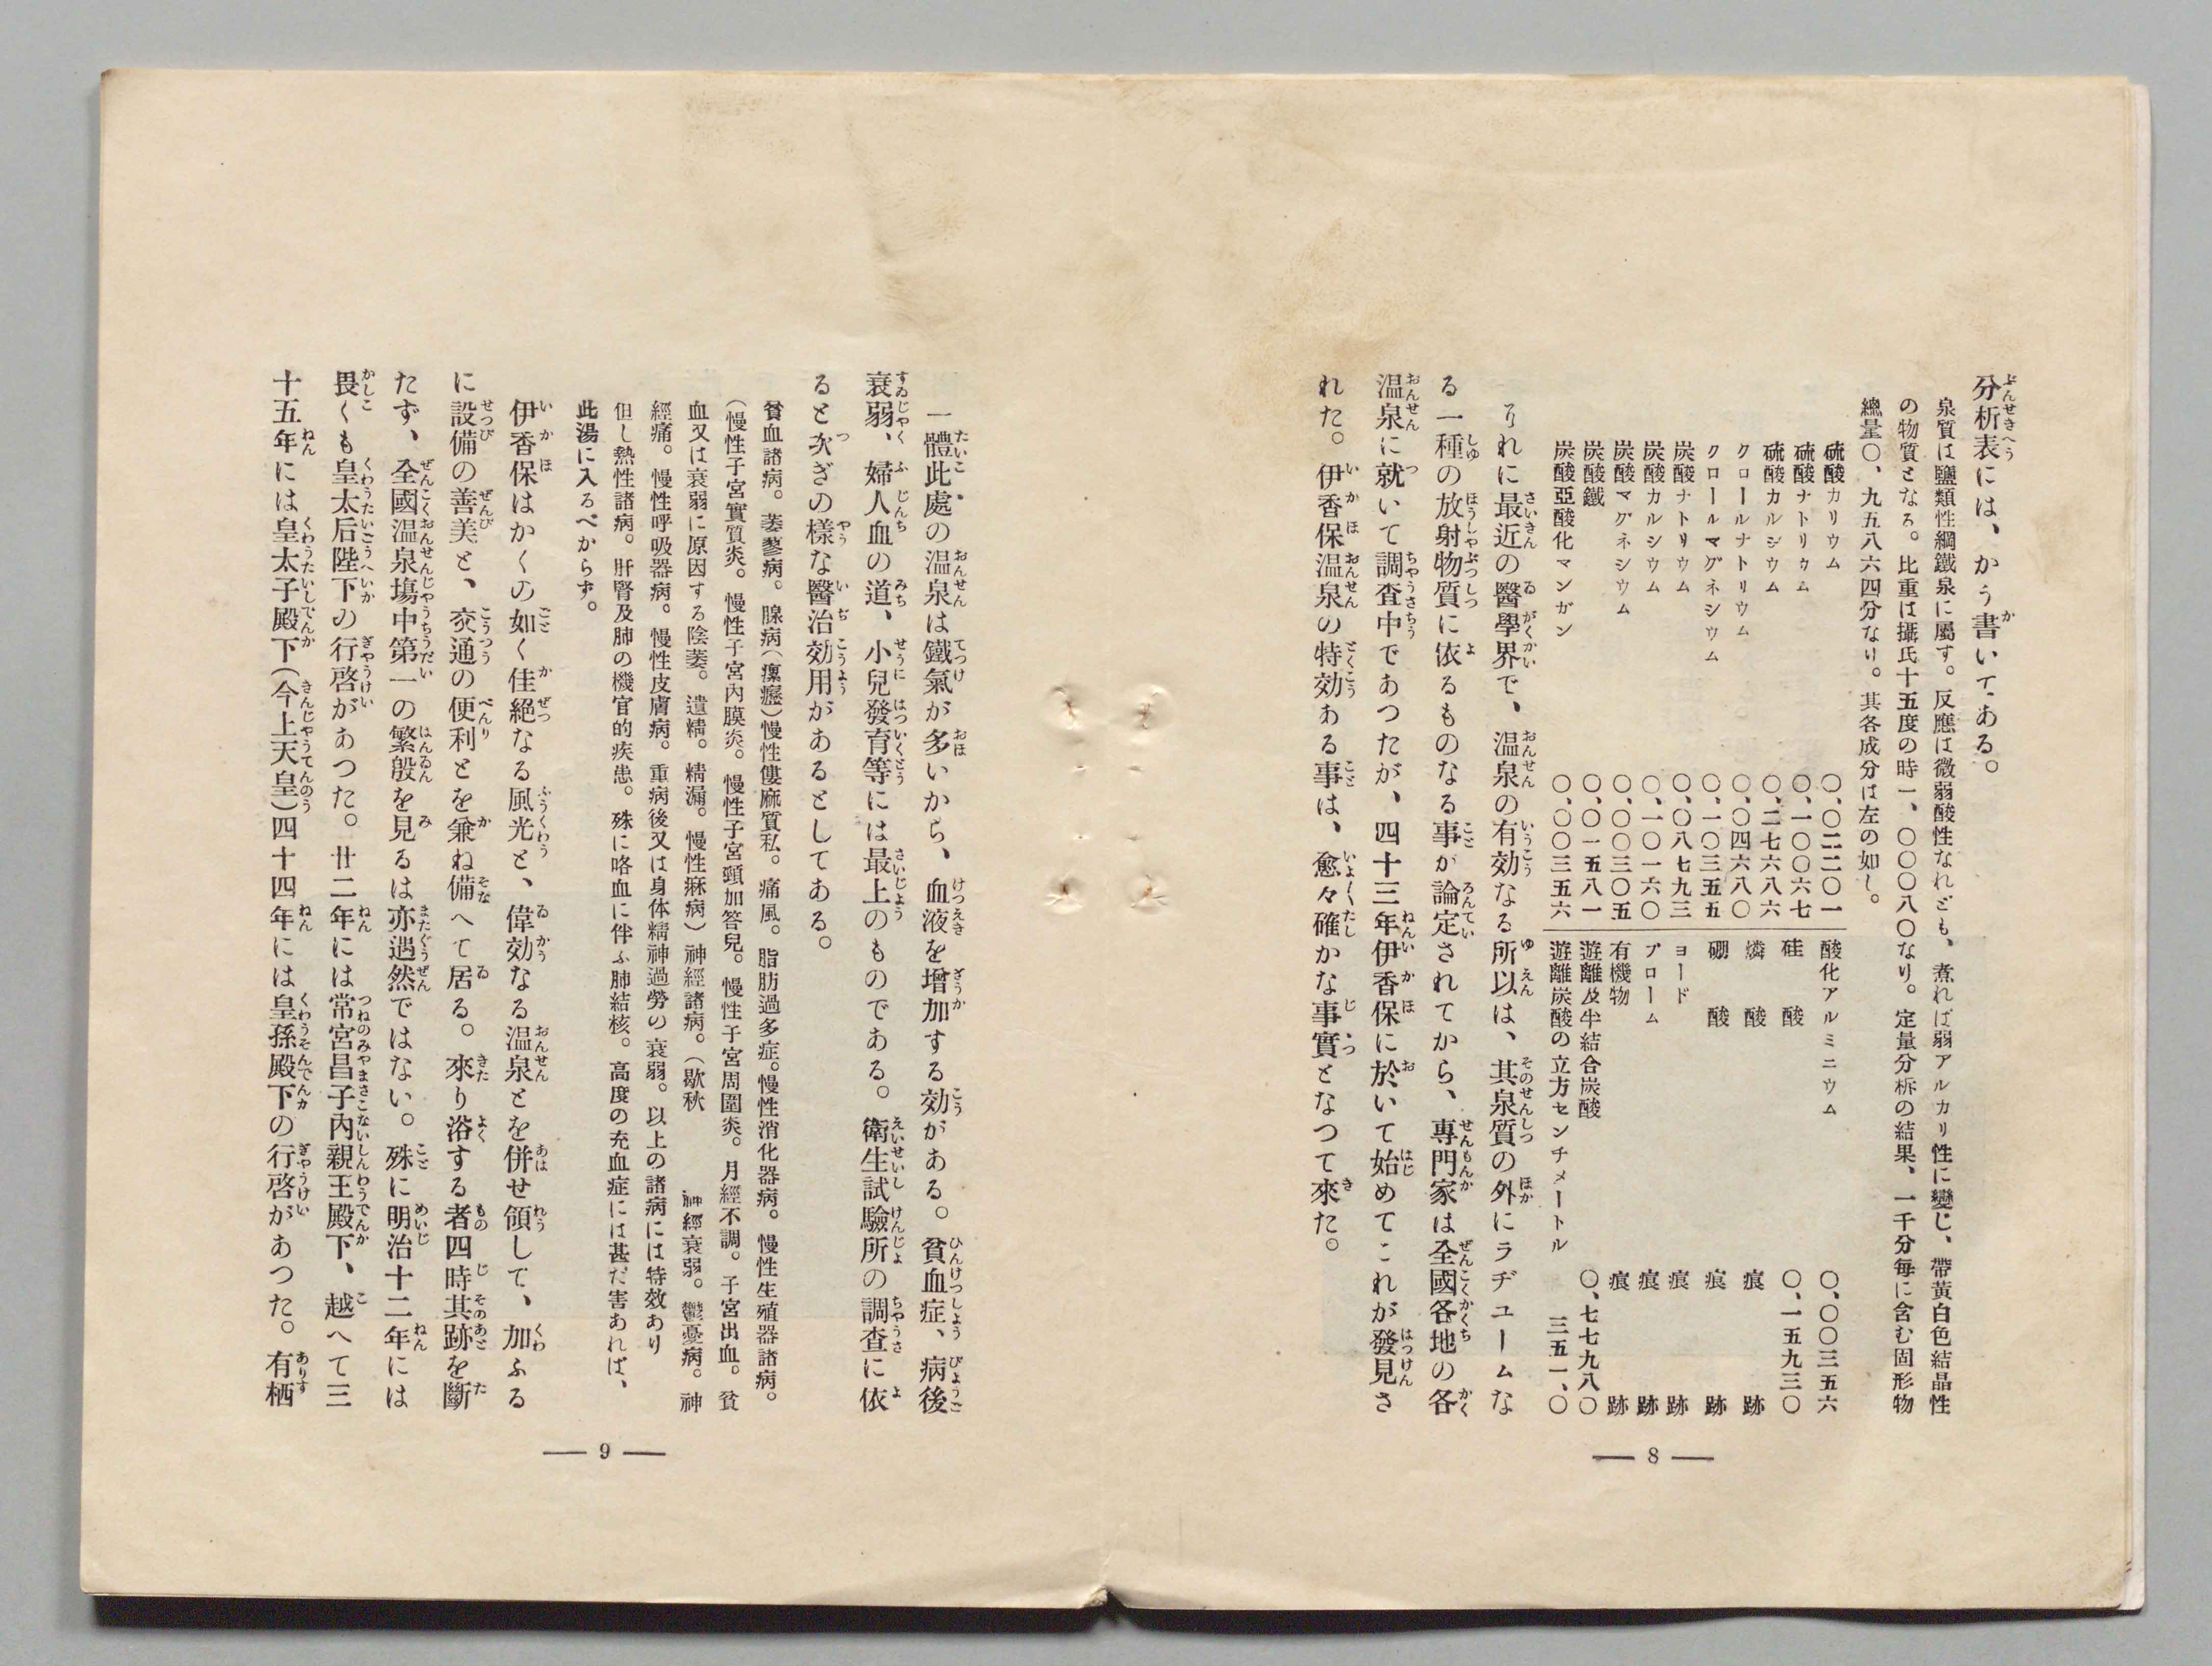 分析表には、かう書いてある。
泉質は鹽類性鋼鐵泉に屬す。反應は微弱酸性なれども、煮れば弱アルカリ性に變じ、帶黃白色結晶性
の物質となる。比重は攝氏十五度の時一、〇〇〇八〇なり。定量分析の結果、一千分每に含む固形物
總量〇、九五八六四分なり。其各成分は左の如し。
硫酸カリウム 〇、〇二二〇一
硫酸ナトリウム 〇、一〇〇六七
硫酸カルシウム 〇、二七六八六
クロールナトリウム 〇、〇四六八〇
クロールマグネシウム 〇、一〇三五五
炭酸ナトリウム 〇、〇八七九三
炭酸カルシウム 〇、一〇一六〇
炭酸マグネシウム 〇、〇〇三〇五
炭酸鐵 〇、〇一五八一
炭酸亞酸化マンガン 〇、〇〇三五六
酸化アルミニウム 〇、〇〇三五六
硅酸 〇、一五九三〇
燐酸 痕跡
硼酸 痕跡
ヨード 痕跡
ブローム 痕跡
有機物 痕跡
遊離及半結合炭酸 〇、七七九八〇
遊離炭酸の立方センチメートル 三五一、〇
それに最近の醫學界で、温泉の有効なる所以は、其泉質の外にラヂュームな
る一種の放射物質に依るものなる事が論定されてから、專門家は全國各地の各
温泉に就いて調査中であつたが、四十三年伊香保に於いて始めてこれが發見さ
れた。伊香保温泉の特効ある事は、愈々確かな事實となつて來た。
— 8 —
一體此處の温泉は鐵氣が多いから、血液を增加する効がある。貧血症、病後
衰弱、婦人血の道、小兒發育等には最上のものである。衛生試驗所の調査に依
ると次ぎの樣な醫治効用があるとしてある。
貧血諸病。萎黃病。腺病（瘰癧）慢性僂麻質私。痛風。脂肪過多症。慢性消化器病。慢性生殖器諸病。
（慢性子宮實質炎。慢性子宮內膜炎。慢性子宮頸加答兒。慢性子宮周圍炎。月經不調。子宮出血。貧
血又は衰弱に原因する陰萎。遺精。精漏。慢性痳病）神經諸病。（歇秋 神經衰弱。鬱憂病。神
經痛。慢性呼吸器病。慢性皮膚病。重病後又は身体精神過勞の衰弱。以上の諸病には特效あり
但し熱性諸病。肝腎及肺の機官的疾患。殊に咯血に伴ふ肺結核。高度の充血症には甚だ害あれば、
此湯に入るべからず。
伊香保はかくの如く佳絕なる風光と、偉効なる温泉とを併せ領して、加ふる
に設備の善美と、交通の便利とを兼ね備へて居る。來り浴する者四時其跡を斷
たず、全國温泉塲中第一の繁殷を見るは亦遇然ではない。殊に明治十二年には
畏くも皇太后陛下の行啓があつた。廿二年には常宮昌子內親王殿下、越へて三
十五年には皇太子殿下（今上天皇）四十四年には皇孫殿下の行啓があつた。有栖
— 9 —